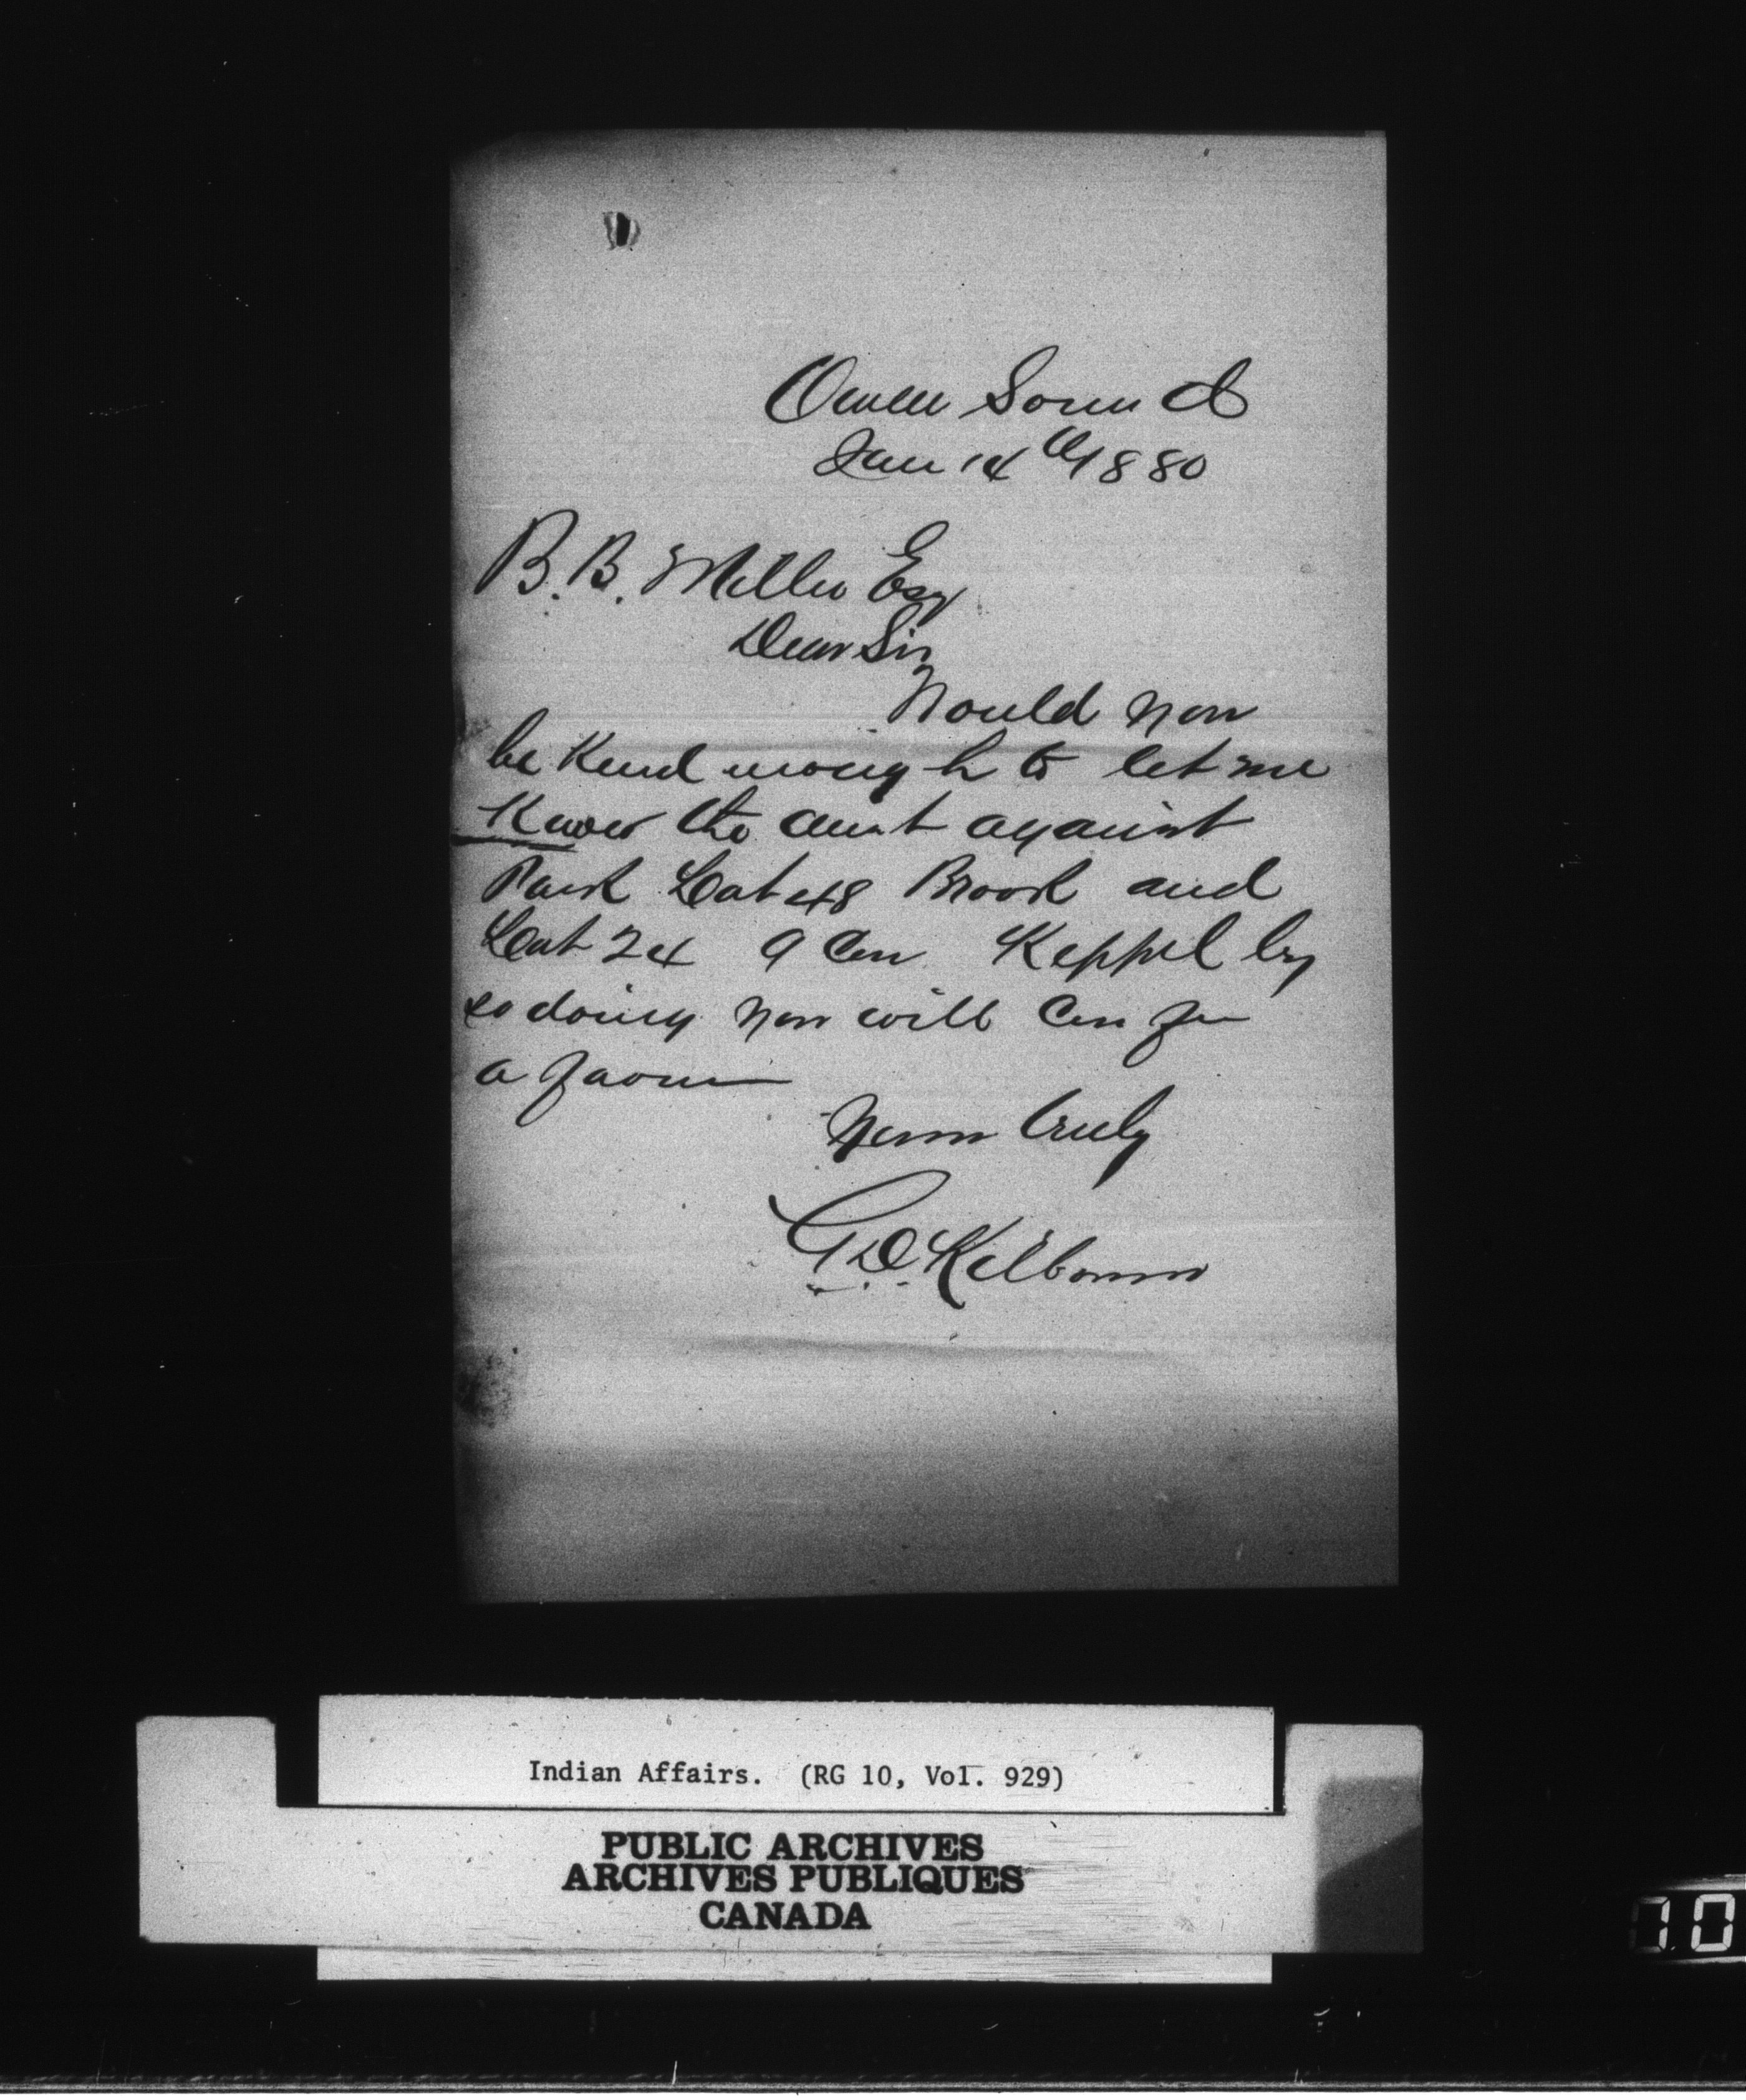 Owen Sound
Jan 14th 1880
B.B. Miller Esq
Dear Sir
Would you
be Kind enough to let me
Know the amt against
Park Lot 48 Brook and
Lot 24 9 Con Keppel by
so doing you will Confer
a favour
Yours truly
G.D. Kilbourn
Indian Affairs. (RG 10, Vol. 929)
PUBLIC ARCHIVES
ARCHIVES PUBLIQUES
CANADA
10